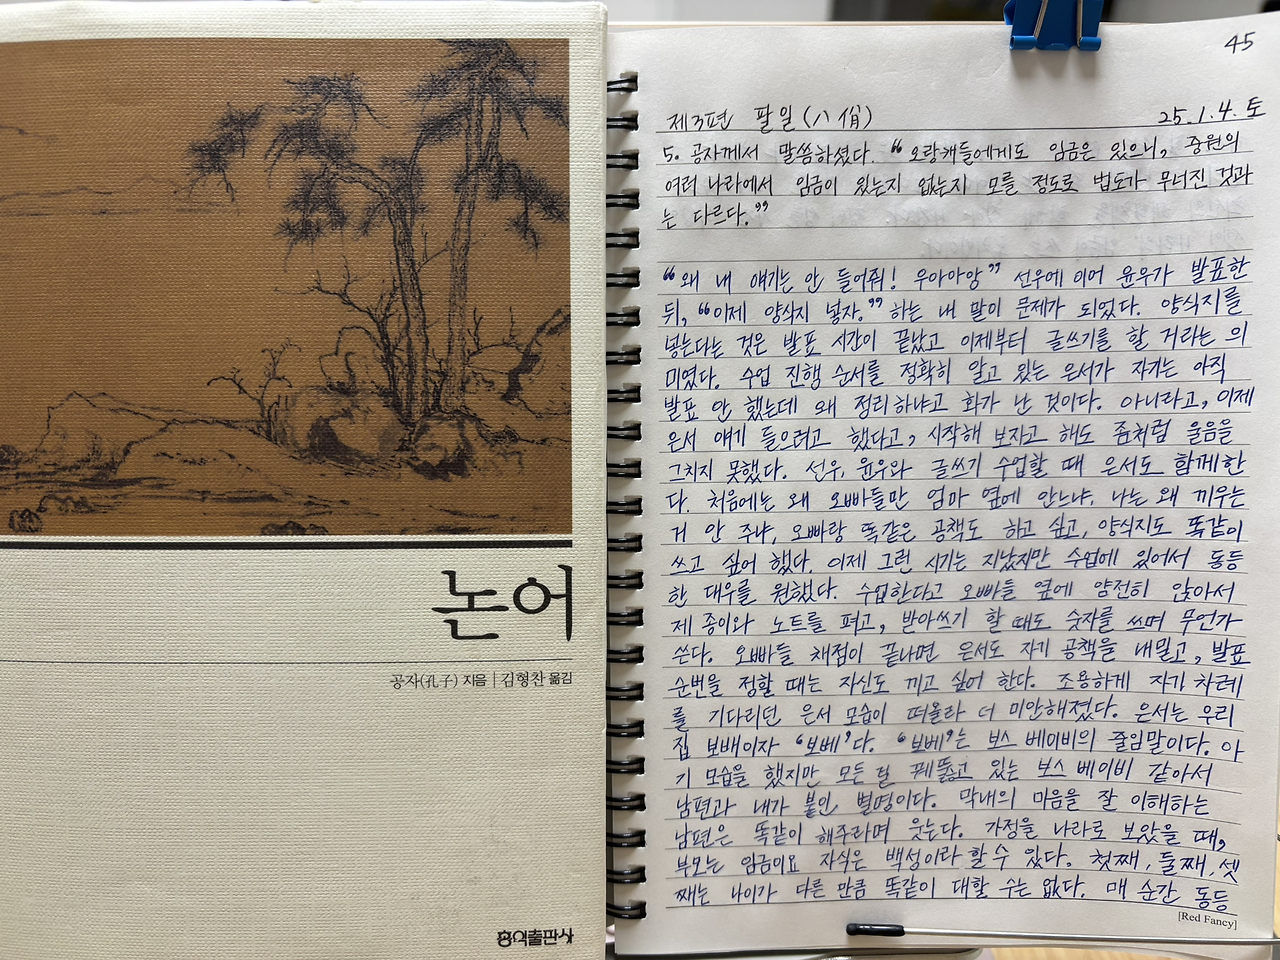 논어
공자(孔子) 지음 | 김형찬 옮김
홍익출판사
45
제3편 팔일(八佾) 25.1.4.토
5. 공자께서 말씀하셨다. “오랑캐들에게도 임금은 있으니, 중원의
여러 나라에서 임금이 있는지 없는지 모를 정도로 법도가 무너진 것과
는 다르다.”
“왜 내 얘기는 안 들어줘! 우아아앙” 선우에 이어 윤우가 발표한
뒤, “이제 양식지 넣자.” 하는 내 말이 문제가 되었다. 양식지를
넣는다는 것은 발표 시간이 끝났고 이제부터 글쓰기를 할 거라는 의
미였다. 수업 진행 순서를 정확히 알고 있는 은서가 자기는 아직
발표 안 했는데 왜 정리하냐고 화가 난 것이다. 아니라고, 이제
은서 얘기 들으려고 했다고, 시작해 보자고 해도 좀처럼 울음을
그치지 못했다. 선우, 윤우와 글쓰기 수업할 때 은서도 함께한
다. 처음에는 왜 오빠들만 엄마 옆에 앉느냐, 나는 왜 끼우는
거 안 주냐, 오빠랑 똑같은 공책도 하고 싶고, 양식지도 똑같이
쓰고 싶어 했다. 이제 그런 시기는 지났지만 수업에 있어서 동등
한 대우를 원했다. 수업한다고 오빠들 옆에 얌전히 앉아서
제 종이와 노트를 펴고, 받아쓰기 할 때도 숫자를 쓰며 무언가
쓴다. 오빠들 채점이 끝나면 은서도 자기 공책을 내밀고, 발표
순번을 정할 때는 자신도 끼고 싶어 한다. 조용하게 자기 차례
를 기다리던 은서 모습이 떠올라 더 미안해졌다. 은서는 우리
집 보배이자 ‘보베’다. ‘보베’는 보스 베이비의 줄임말이다. 아
기 모습을 했지만 모든 걸 꿰뚫고 있는 보스 베이비 같아서
남편과 내가 붙인 별명이다. 막내의 마음을 잘 이해하는
남편은 똑같이 해주라며 웃는다. 가정을 나라로 보았을 때,
부모는 임금이요 자식은 백성이라 할 수 있다. 첫째, 둘째, 셋
째는 나이가 다른 만큼 똑같이 대할 수는 없다. 매 순간 동등
[Red Fancy]